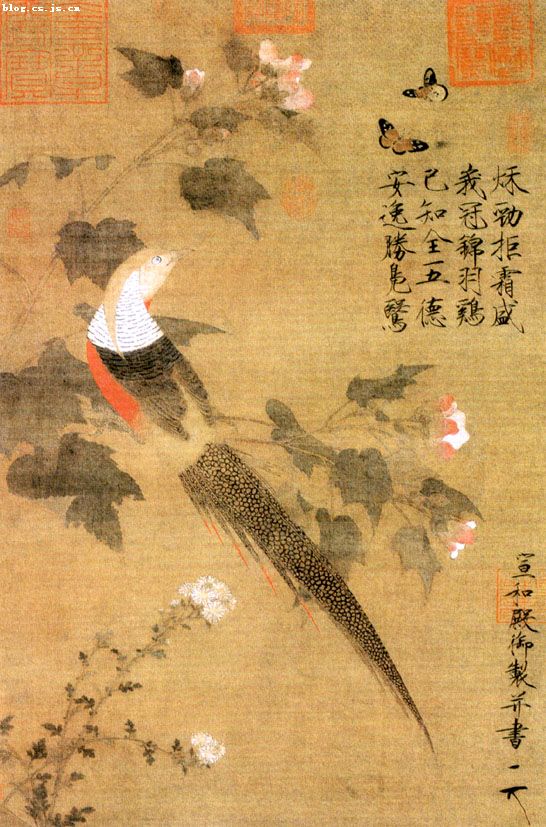 blog.cs.js.cn
秋勁拒霜盛
峩冠錦羽鷄
已知全五德
安逸勝鳧鷖
宣和殿御製并書